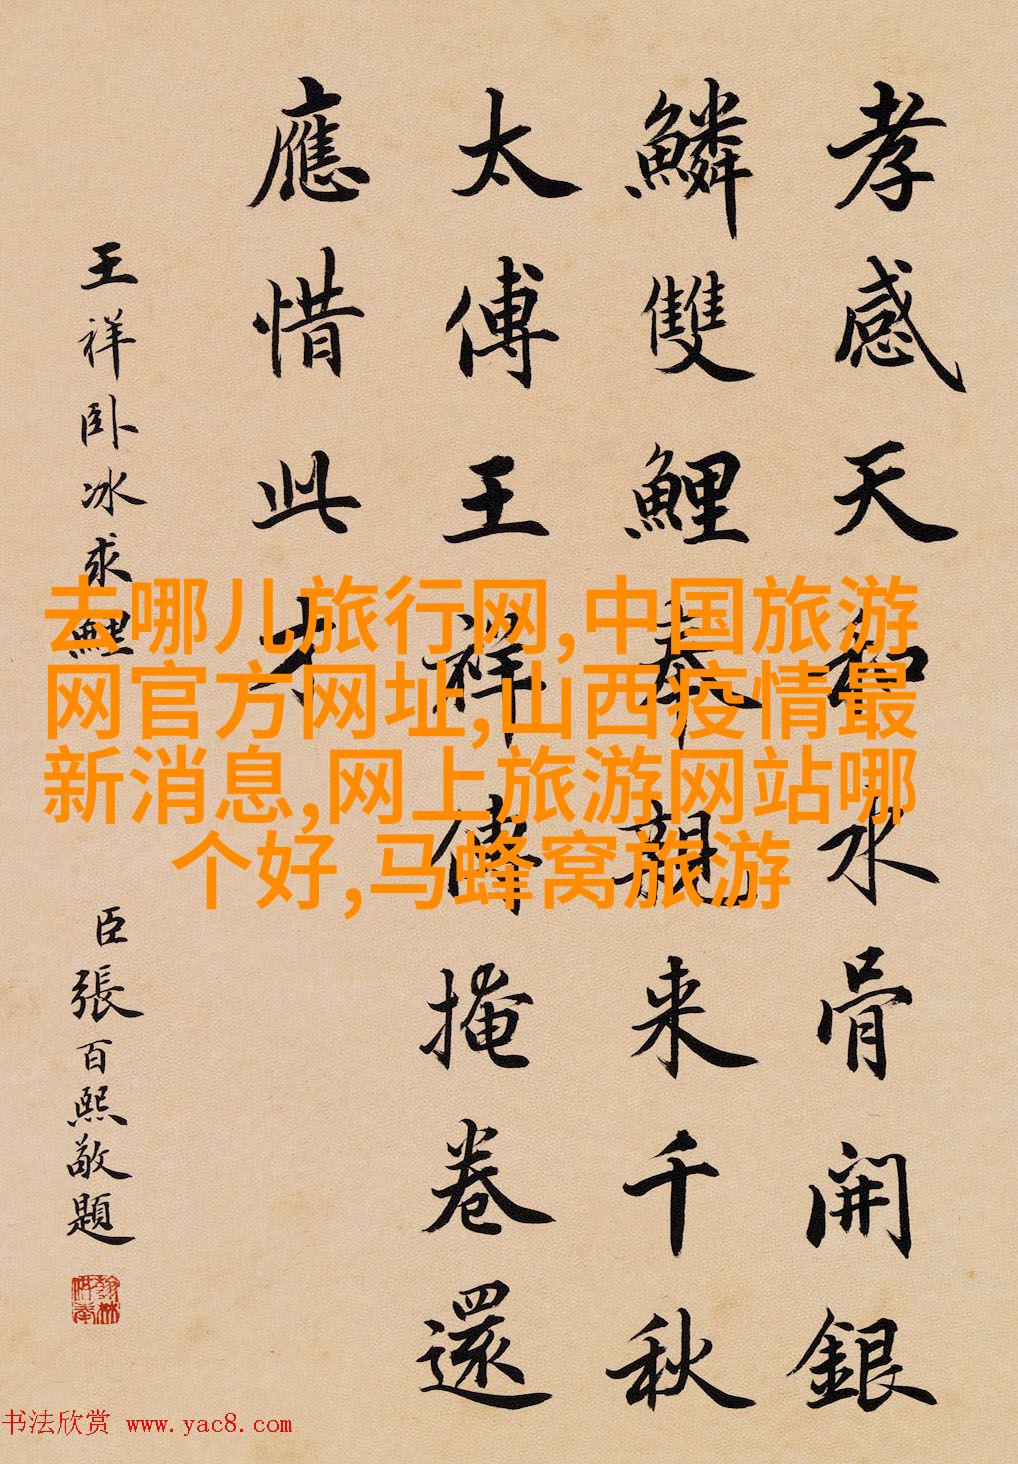 孝感天和水骨開銀
鱗雙鯉奉親来千秋
太傅王祥傳掩卷還
應惜此才
王祥卧冰求鯉
臣張百熙敬題
去哪儿旅行网,中国旅游
网官方网址,山西疫情最
新消息,网上旅游网站哪
个好,马蜂窝旅游
书法欣赏 www.yac8.com